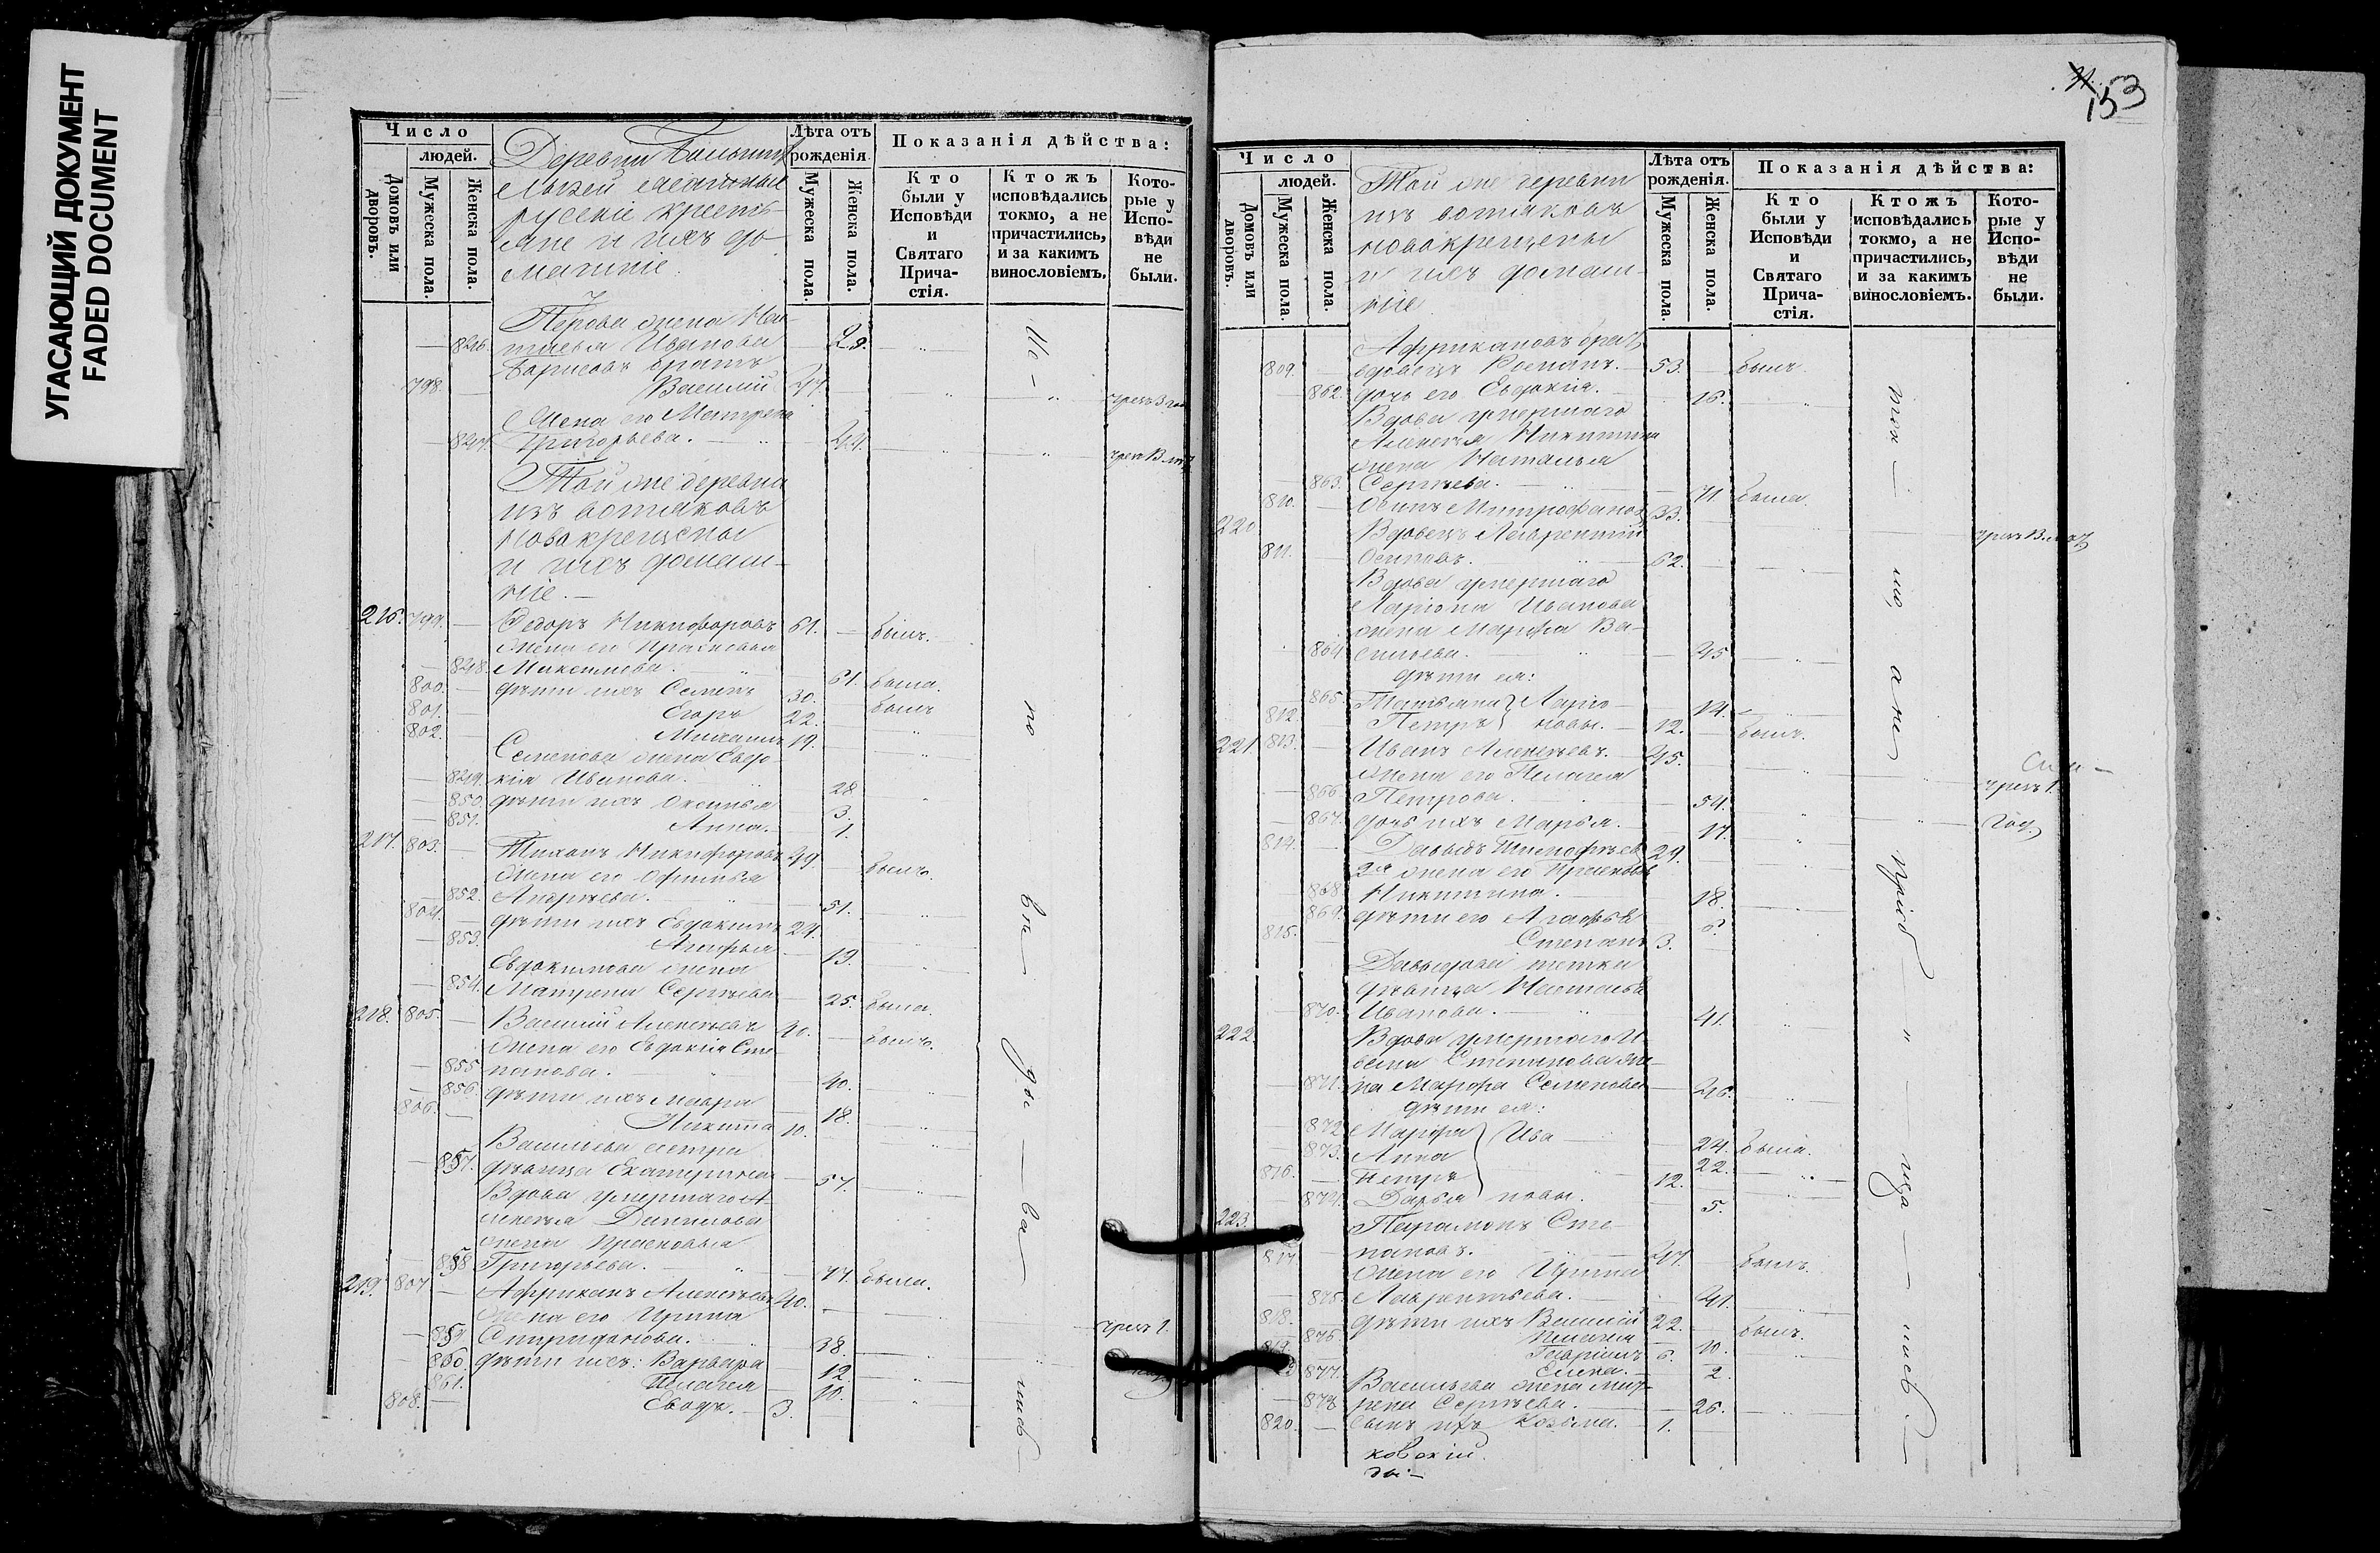 УГАСАЮЩИЙ ДОКУМЕНТ
FADED DOCUMENT
Число
людей.
Домовъ или дворовъ.
Мужеска пола.
Женска пола.
Деревни
русскіе кресть-
яне и ихъ до-
машніе.
Лѣта отъ рожденія.
Мужеска пола.
Женска пола.
Показанія дѣйства:
Кто были у Исповѣди и Святаго Прича-стія.
Ктожъ исповѣдались токмо, а не причастились, и за какимъ винословіемъ.
Кото-рые у Испо-вѣди не были.
846. Иванова
Борисовъ братъ
798. Василий 47.
Жена его Матрена
847. Григорьева. 44.
Той же деревни
изъ вотяковъ
новокрещены
и ихъ домаш-
ніе.
216. 799. Федоръ Никифоровъ 61. былъ.
Жена его Прасковья
848. 61. была.
800. дѣти ихъ Семенъ 30. былъ
801. Егоръ 22.
802. Михаилъ 19.
Семенова жена Евдо-
849. кія Иванова. 28
850. дѣти ихъ 3.
851. Анна. 1.
217. 803. Тихонъ Никифоровъ 49. былъ.
Жена его Офимья
852. Андреева. 51.
804. дѣти ихъ Евдокимъ 24.
853. 19.
Евдокимова жена
854. Матрена Сергѣева 25. была.
218. 805. Василій Алексѣевъ 40. былъ.
Жена его Евдокія Сте-
855 панова. 40.
856. дѣти ихъ Мавра 18.
806. Никита 10.
Васильева сестра
857. дѣвица Екатерина 57.
Вдова умершаго А-
лексѣя Данилова
жена Прасковья
858 Григорьева. 77. была.
219. 807 Африканъ Алексѣевъ 40.
Жена его Ирина
859 Спиридонова. 38. чрезъ 1.
860. дѣти ихъ: Варвара 12.
861. Пелагея 10.
808. 3.
153
Число
людей.
Домовъ или дворовъ.
Мужеска пола.
Женска пола.
Той же деревни
изъ вотяковъ
новокрещены
и ихъ домаш-
ніе
Лѣта отъ рожденія.
Мужеска пола.
Женска пола.
Показанія дѣйства:
Кто были у Исповѣди и Святаго Прича-стія.
Ктожъ исповѣдались токмо, а не причастились, и за какимъ винословіемъ.
Кото-рые у Испо-вѣди не были.
Африкановъ братъ
809. вдовецъ Романъ. 53. былъ.
862. дочь его Евдокія. 16.
Вдова умершаго
Алексѣя Никитина
жена Наталья
863. Сергѣева. 71 была.
810. Осипъ Митрофановъ 33.
220 Вдовецъ Лаврентій
811. Осиповъ. 62.
Вдова умершаго
Ларіона Иванова
жена Марфа Ва-
864 сильева. 45
дѣти ея:
865. Татьяна Ларіо- 14.
812 Петръ новы. 12. былъ.
221 813. Иванъ Алексѣевъ. 45.
жена его Пелагея
866 Петрова. 54. чрезъ 1.
867. дочь ихъ Марья. 17. год.
814. Давыдъ Тимофѣевъ 29.
2я жена его Прасковья
868. Никитина. 18.
869. дѣти его Агафья 6.
815. Степанъ 3.
Давыдова тетка
дѣвица Наталья
870. Иванова. 41.
222 Вдова умершаго И-
вана Степанова же-
871. на Марфа Семенова 46.
дѣти ея:
872 Марфа Ива- 24. была.
873. Анна 22.
816. Петръ 12.
874. Дарья новы. 5.
223. Парамонъ Сте-
817 пановъ. 47. былъ.
Жена его Ирина
875. Лаврентьева. 41.
818. дѣти ихъ Василій 22. былъ.
876. Пелагея 10.
819. Гаврилъ 6.
877. Елена. 2.
Васильева жена Мат-
878 рена Сергѣева. 26.
820. сынъ ихъ Козьма. 1.
ковскій.